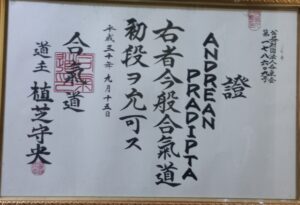 公益財団法人合気会
證
ANDREAN
PRADIPTA
右者今般合氣道
初段ヲ允可ス
平成三十年九月十五日
合氣道
道主 植芝守央